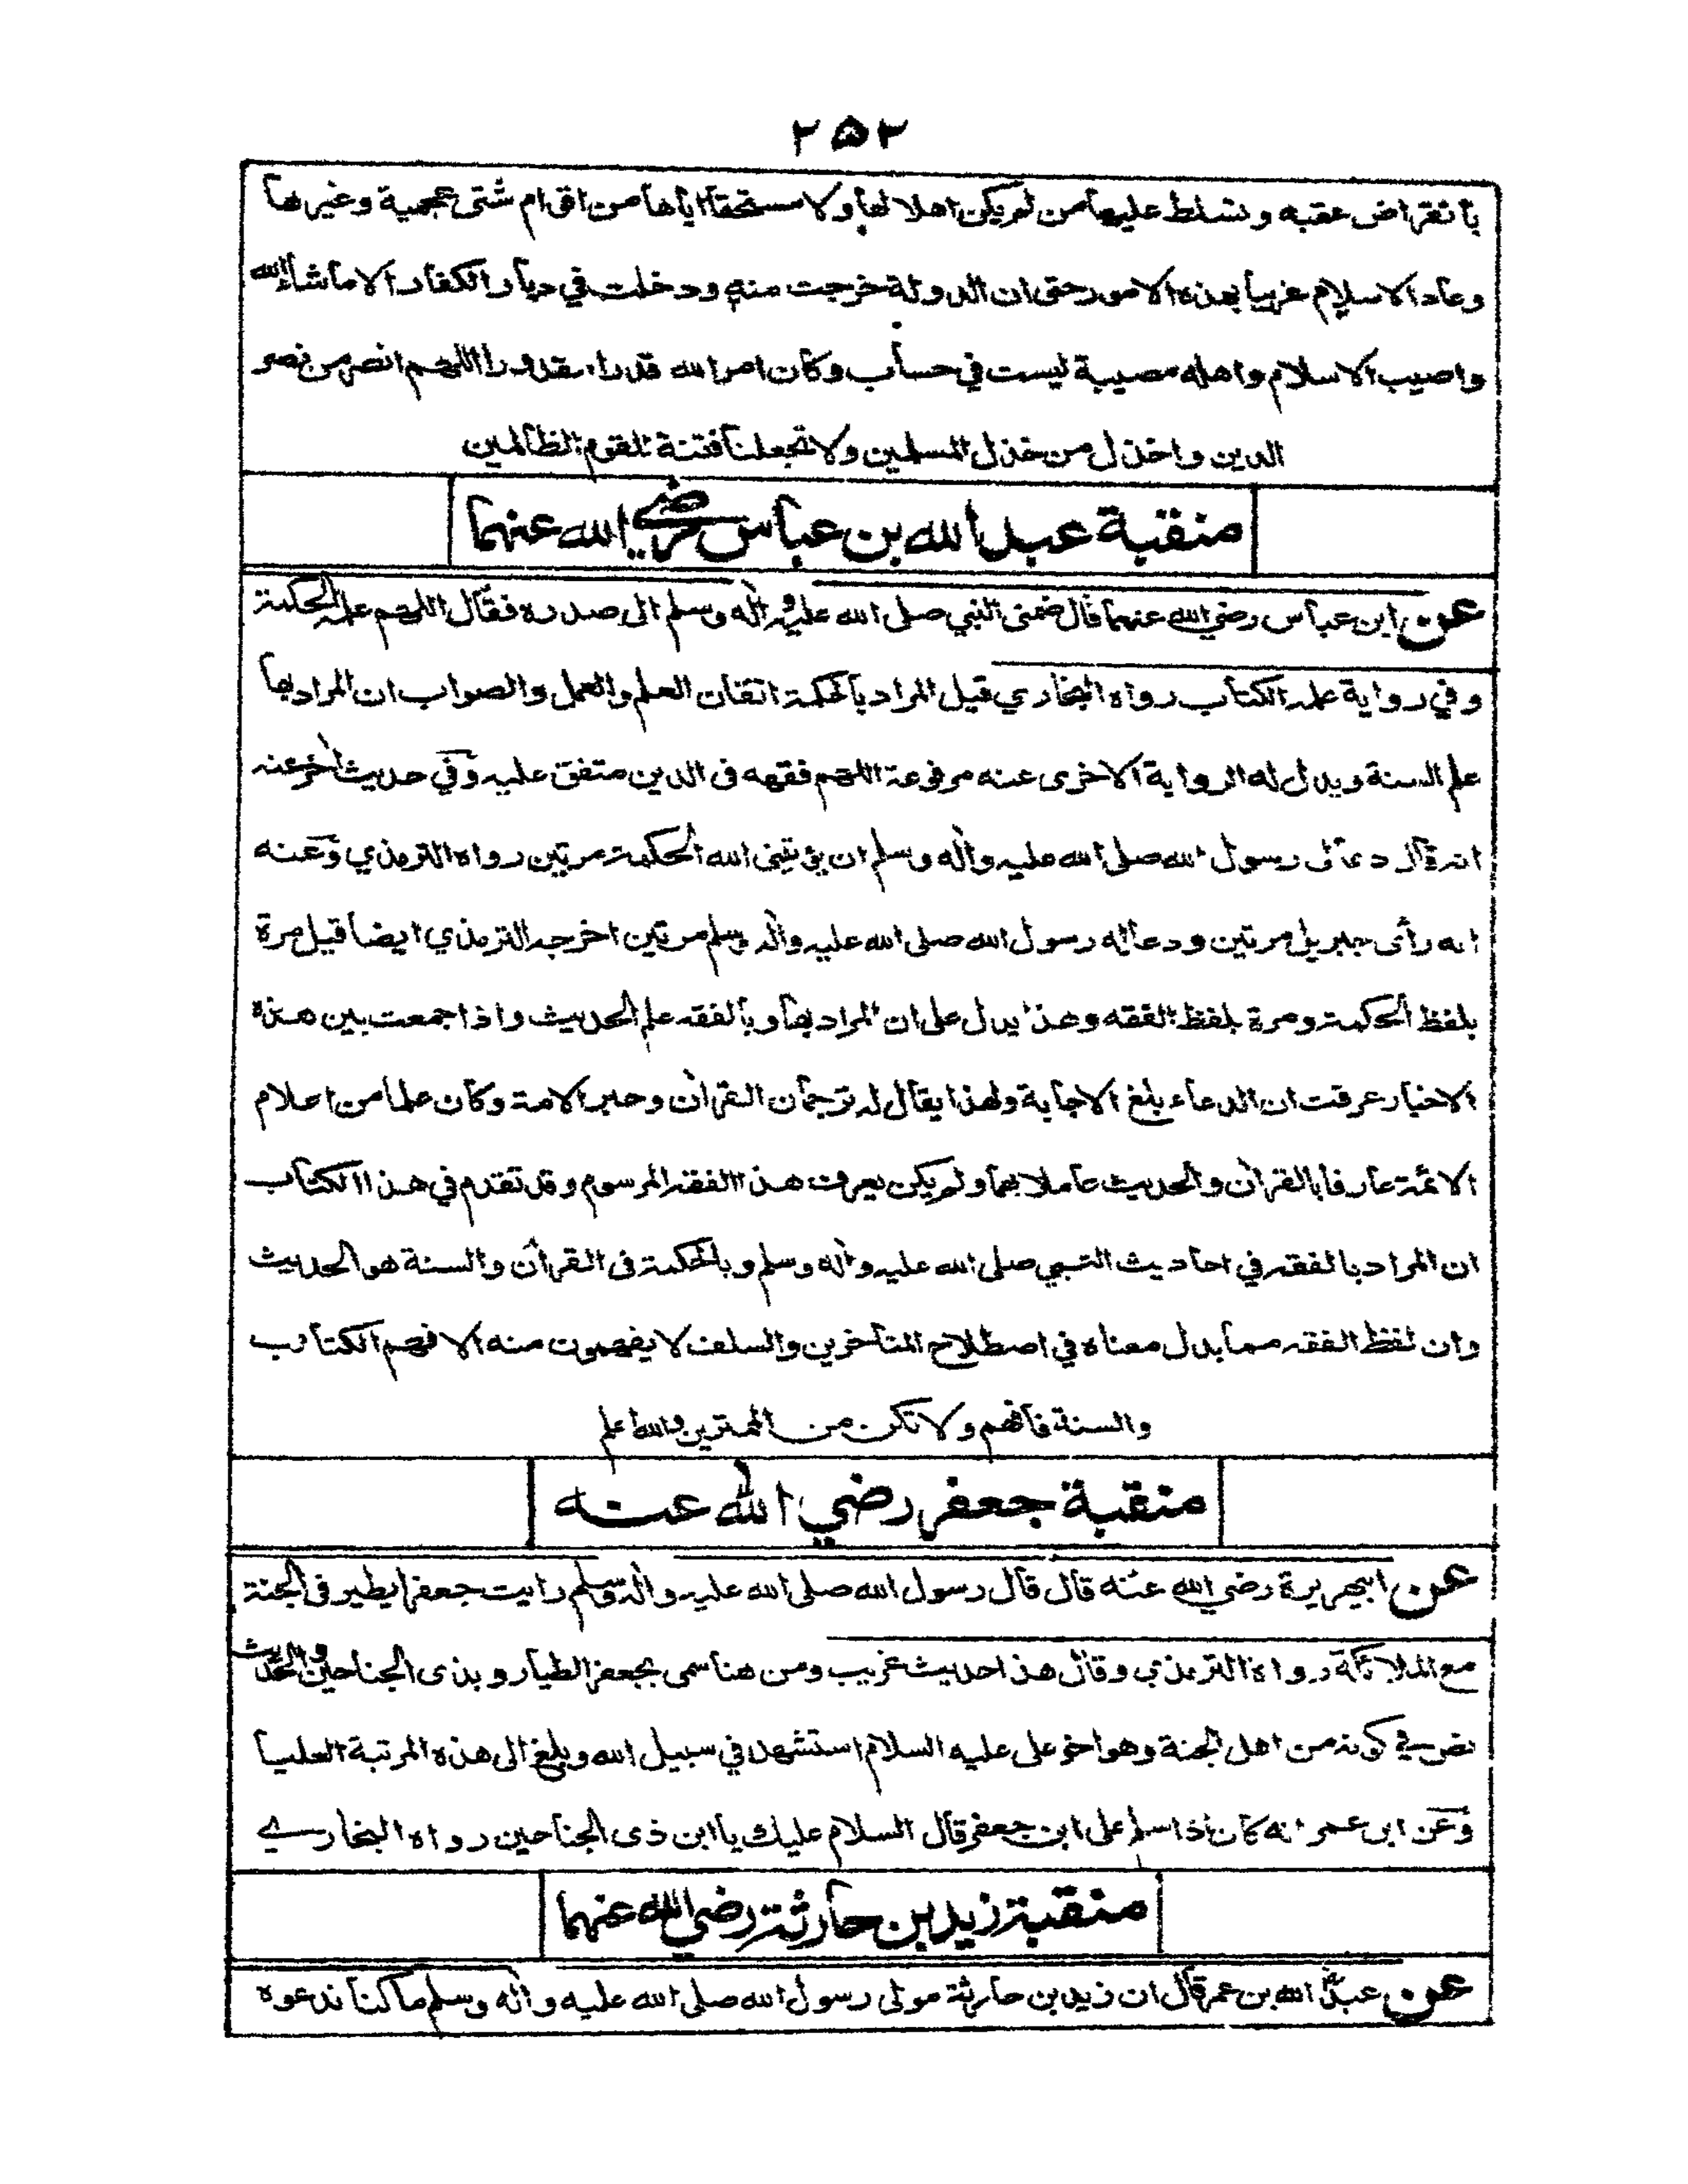 ٢٥٢
بانقراض عقبه وتسلط عليها من لم يكن اهلا لها ولا مستحقا اياها من اقوام شتى عجمية وغيرها
وعاد الاسلام غريبا بهذه الامور حتى ان الدولة خرجت منهم ودخلت في ديار الكفار الا ما شاء الله
واصيب الاسلام واهله مصيبة ليست في حساب وكان امر الله قدرا مقدورا اللهم انصر من نصر
الدين واخذل من خذل المسلمين ولا تجعلنا فتنة للقوم الظالمين
منقبة عبد الله بن عباس رضي الله عنهما
عن ابن عباس رضي الله عنهما قال ضمنى النبي صلى الله عليه وآله وسلم الى صدره فقال اللهم علمه الحكمة
وفي رواية علمه الكتاب رواه البخاري قيل المراد بالحكمة اتقان العلم والعمل والصواب ان المراد بها
علم السنة ويدل له الرواية الاخرى عنه مرفوعة اللهم فقهه فى الدين متفق عليه وفي حديث آخر عنه
انه قال دعا لى رسول الله صلى الله عليه وآله وسلم ان يؤتينى الله الحكمة مرتين رواه الترمذي وعنه
انه رأى جبريل مرتين ودعا له رسول الله صلى الله عليه وآله وسلم مرتين اخرجه الترمذي ايضا قيل مرة
بلفظ الحكمة ومرة بلفظ الفقه وهذا يدل على ان المراد بها وبالفقه علم الحديث واذا جمعت بين هذه
الاخبار عرفت ان الدعاء بلغ الاجابة ولهذا يقال له ترجمان القرآن وحبر الامة وكان علما من اعلام
الائمة عارفا بالقرآن والحديث عاملا بهما ولم يكن يعرف هذا الفقه المرسوم وقد تقدم في هذا الكتاب
ان المراد بالفقه في احاديث النبي صلى الله عليه وآله وسلم وبالحكمة فى القرآن والسنة هو الحديث
وان لفظ الفقه مما بدل معناه في اصطلاح المتاخرين والسلف لا يفهمون منه الا فهم الكتاب
والسنة فافهم ولا تكن من الممترين والله اعلم
منقبة جعفر رضي الله عنه
عن ابيهريرة رضي الله عنه قال قال رسول الله صلى الله عليه وآله وسلم رايت جعفرا يطير فى الجنة
مع الملائكة رواه الترمذي وقال هذا حديث غريب ومن هنا سمى بجعفر الطيار وبذى الجناحين والحديث
نص في كونه من اهل الجنة وهو اخو على عليه السلام استشهد في سبيل الله وبلغ الى هذه المرتبة العليا
وعن ابن عمر انه كان اذا سلم على ابن جعفر قال السلام عليك يا ابن ذى الجناحين رواه البخاري
منقبة زيد بن حارثة رضي الله عنهما
عن عبد الله بن عمر قال ان زيد بن حارثة مولى رسول الله صلى الله عليه وآله وسلم ما كنا ندعوه